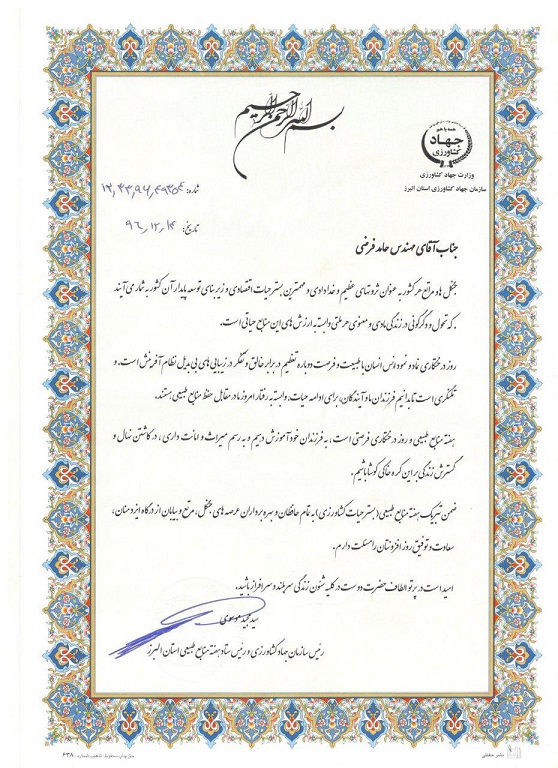 بسم الله الرحمن الرحیم
همه با هم
جهاد
کشاورزی
وزارت جهاد کشاورزی
سازمان جهاد کشاورزی استان البرز
شماره:
تاریخ: ۹۶,۱۲,۱۴
جناب آقای مهندس حامد فرضی
جنگل ها و مراتع هر کشور به عنوان ثروتهای عظیم و خدادادی و مهمترین بستر حیات اقتصادی و زیربنای توسعه پایدار آن کشور به شمار می آیند
که تحول و دگرگونی در زندگی مادی و معنوی هر ملتی وابسته به ارزش های این منابع حیاتی است.
روز درختکاری نماد و نمود انس انسان با طبیعت و فرصت دوباره تعظیم در برابر خالق و تفکر در زیبایی های بی بدیل نظام آفرینش است. و
تلنگری است تا بدانیم فرزندان ما و آیندگان، برای ادامه حیات، وابسته به رفتار امروز ما در مقابل حفظ منابع طبیعی هستند.
هفته منابع طبیعی و روز درختکاری فرصتی است، به فرزندان خود آموزش دهیم و به رسم میراث و امانت داری، در کاشتن نهال و
گسترش زندگی بر این کره خاکی کوشا باشیم.
ضمن تبریک هفته منابع طبیعی (بستر حیات کشاورزی) به تمام حافظان و بهره برداران عرصه های جنگل، مرتع و بیابان از درگاه ایزد منان،
سعادت و توفیق روز افزونتان را مسئلت دارم.
امید است در پرتو الطاف حضرت دوست در کلیه شئون زندگی سربلند و سرافراز باشید.
سید مجید موسوی
رئیس سازمان جهاد کشاورزی و رئیس ستاد هفته منابع طبیعی استان البرز
نشر حفظی
حق چاپ محفوظ. تذهیب شماره: ۶۳۸